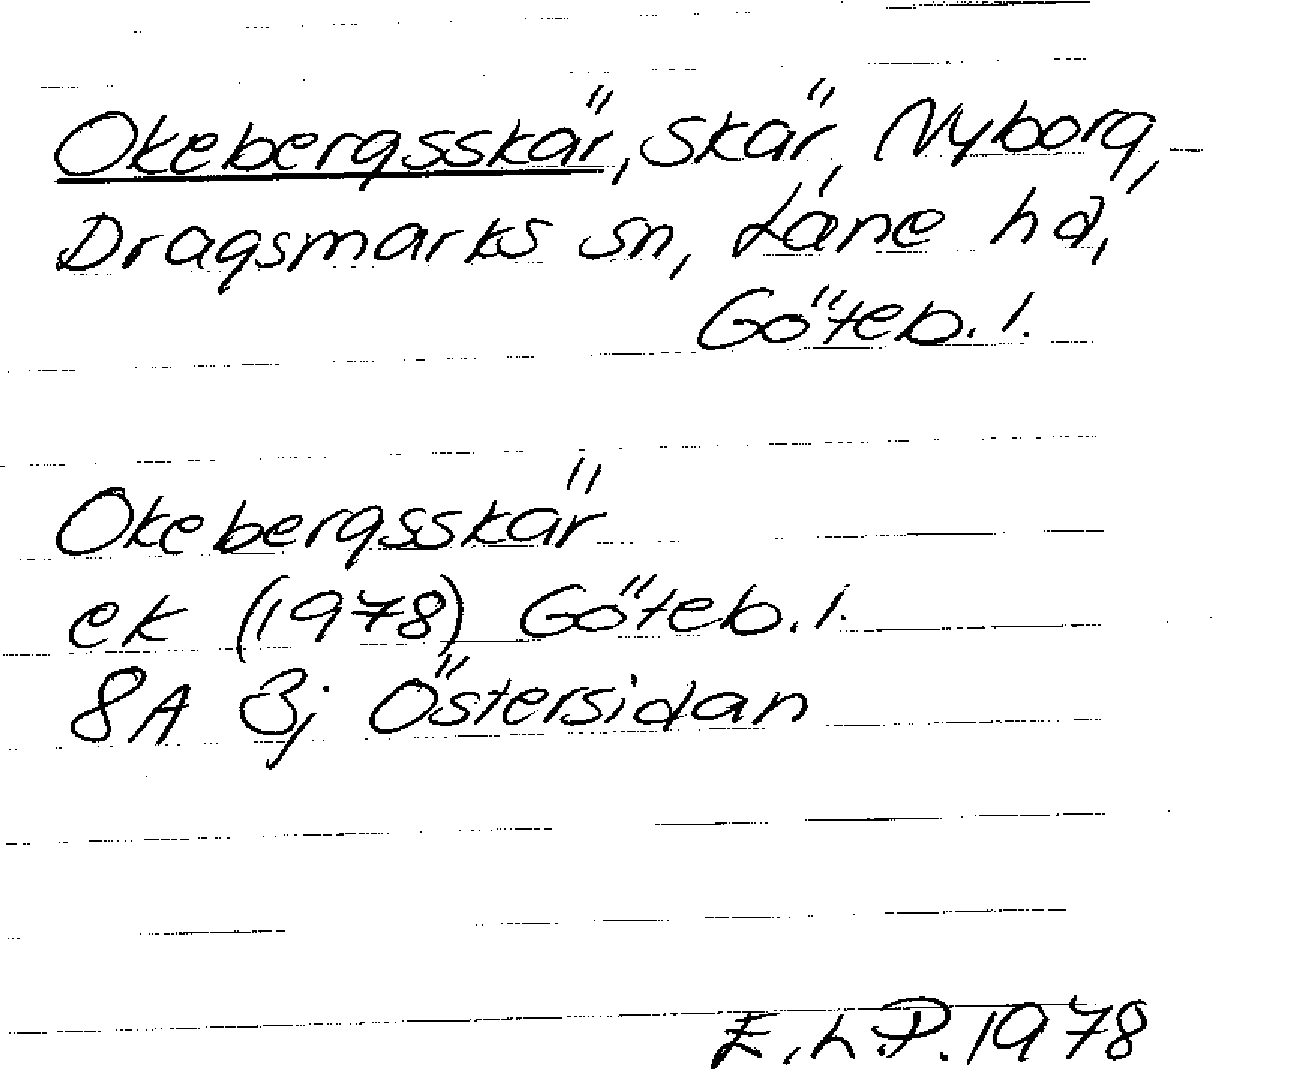 Okebergsskär, Skär, Nyborg,
Dragsmarks sn, Läne hd,
Göteb. l.
Okebergsskär
ek (1978) Göteb. l.
8A 3j Östersidan
E.h.P. 1978